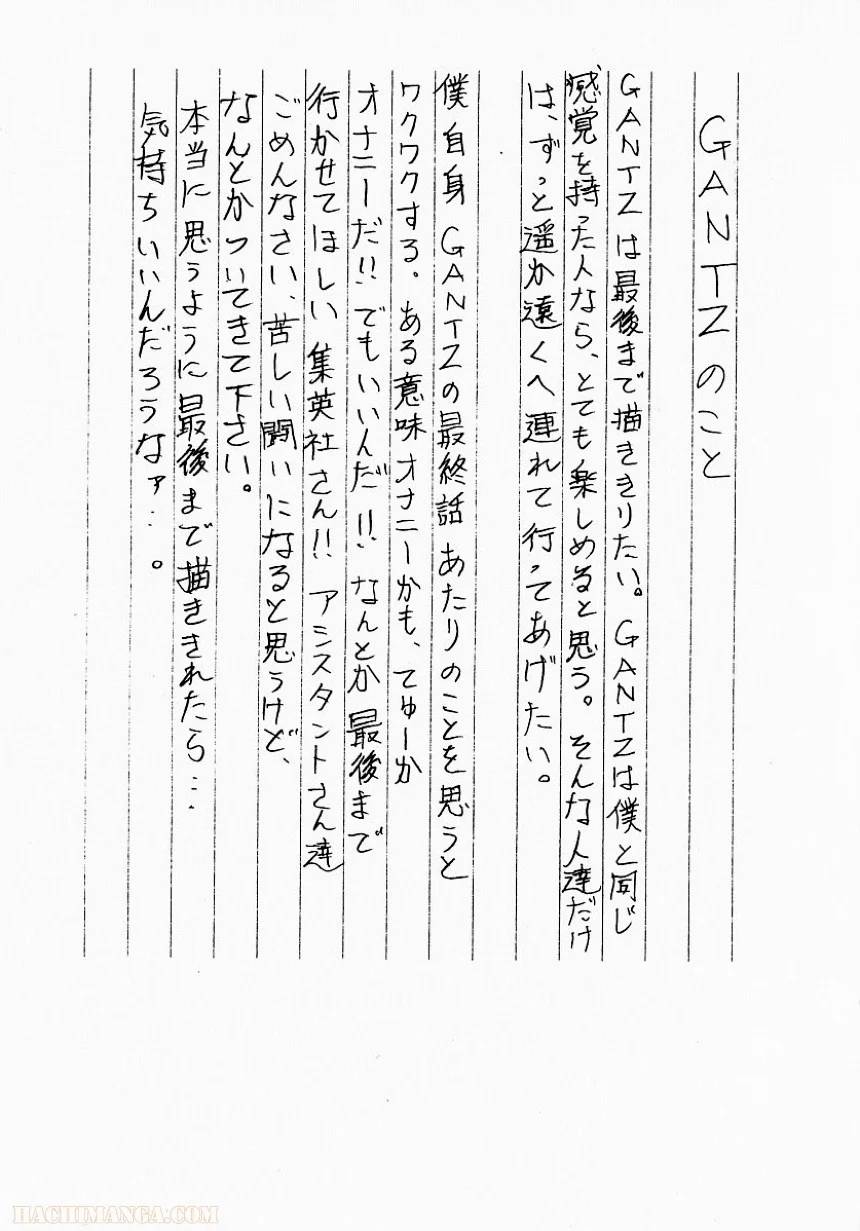 GANTZのこと
GANTZは最後まで描ききりたい。GANTZは僕と同じ
感覚を持った人なら、とても楽しめると思う。そんな人達だけ
は、ずっと遥か遠くへ連れて行ってあげたい。
僕自身GANTZの最終話あたりのことを思うと
ワクワクする。ある意味オナニーかも、てゆーか
オナニーだ!!でもいいんだ!!なんとか最後まで
行かせてほしい集英社さん!!アシスタントさん達
ごめんなさい、苦しい闘いになると思うけど、
なんとかついてきて下さい。
本当に思うように最後まで描ききれたら…
気持ちいいんだろうなァ…。
HACHIMANGA.COM